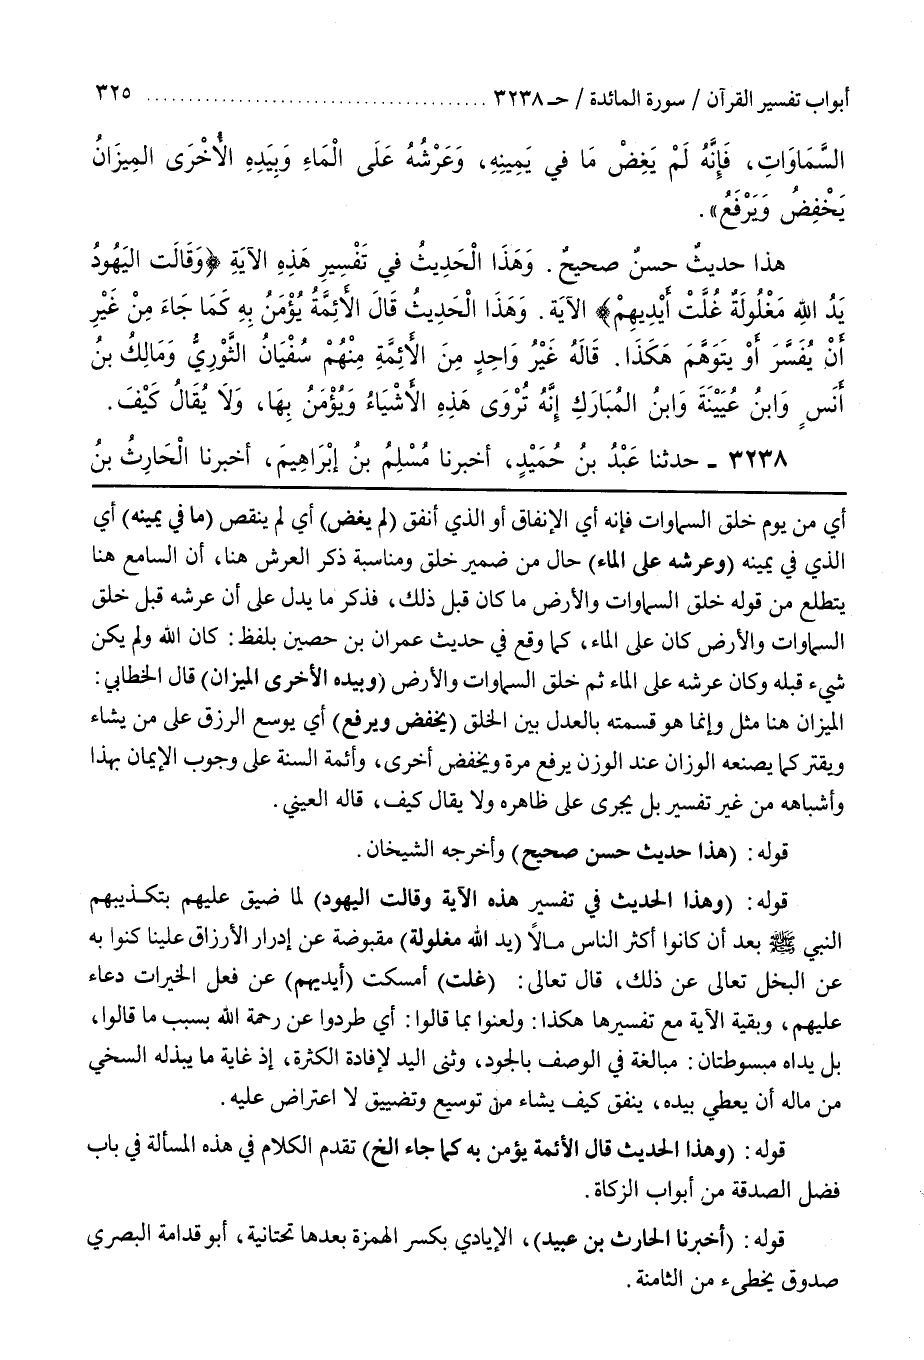 أبواب تفسير القرآن / سورة المائدة / حـ ٣٢٣٨ ........................................ ٣٢٥
السَّمَاوَاتِ، فَإِنَّهُ لَمْ يَغِضْ مَا في يَمِينِهِ، وَعَرْشُهُ عَلَى الْمَاءِ وَبِيَدِهِ الْأُخْرَى المِيزَانُ
يَخْفِضُ وَيَرْفَعُ».
هذا حديثٌ حسنٌ صحيحٌ. وَهَذَا الْحَدِيثُ في تَفْسِيرِ هَذِهِ الآيَةِ ﴿وَقَالَت اليَهُودُ
يَدُ اللهِ مَغْلُولَةٌ غُلَّتْ أَيْدِيهِمْ﴾ الآيَة. وَهَذَا الْحَدِيثُ قَالَ الْأَئِمَّةُ يُؤْمَنُ بِهِ كَمَا جَاءَ مِنْ غَيْرِ
أَنْ يُفَسَّرَ أَوْ يتَوَهَّمَ هَكَذَا. قَالَهُ غَيْرُ وَاحِدٍ مِنَ الْأَئِمَّةِ مِنْهُمْ سُفْيَانُ الثَّوْرِيُّ وَمَالِكُ بنُ
أَنَسٍ وَابنُ عُيَيْنَةَ وَابنُ المُبَارَكِ إِنَّهُ تُرْوَى هَذِهِ الْأَشْيَاءُ وَيُؤْمَنُ بِهَا، وَلَا يُقَالُ كَيْفَ.
٣٢٣٨ ـ حدثنا عَبْدُ بنُ حُمَيْدٍ، أخبرنا مُسْلِمُ بنُ إِبْرَاهِيمَ، أخبرنا الْحَارِثُ بنُ
أي من يوم خلق السماوات فإنه أي الإنفاق أو الذي أنفق (لم يغض) أي لم ينقص (ما في يمينه) أي
الذي في يمينه (وعرشه على الماء) حال من ضمير خلق ومناسبة ذكر العرش هنا، أن السامع هنا
يتطلع من قوله خلق السماوات والأرض ما كان قبل ذلك، فذكر ما يدل على أن عرشه قبل خلق
السماوات والأرض كان على الماء، كما وقع في حديث عمران بن حصين بلفظ: كان الله ولم يكن
شيء قبله وكان عرشه على الماء ثم خلق السماوات والأرض (وبيده الأخرى الميزان) قال الخطابي:
الميزان هنا مثل وإنما هو قسمته بالعدل بين الخلق (يخفض ويرفع) أي يوسع الرزق على من يشاء
ويقتر كما يصنعه الوزان عند الوزن يرفع مرة ويخفض أخرى، وأئمة السنة على وجوب الإيمان بهذا
وأشباهه من غير تفسير بل يجرى على ظاهره ولا يقال كيف، قاله العيني.
قوله: (هذا حديث حسن صحيح) وأخرجه الشيخان.
قوله: (وهذا الحديث في تفسير هذه الآية وقالت اليهود) لما ضيق عليهم بتكذيبهم
النبي ﷺ بعد أن كانوا أكثر الناس مالاً (يد الله مغلولة) مقبوضة عن إدرار الأرزاق علينا كنوا به
عن البخل تعالى عن ذلك، قال تعالى: (غلت) أمسكت (أيديهم) عن فعل الخيرات دعاء
عليهم، وبقية الآية مع تفسيرها هكذا: ولعنوا بما قالوا: أي طردوا عن رحمة الله بسبب ما قالوا،
بل يداه مبسوطتان: مبالغة في الوصف بالجود، وثنى اليد لإفادة الكثرة، إذ غاية ما يبذله السخي
من ماله أن يعطي بيده، ينفق كيف يشاء من توسيع وتضييق لا اعتراض عليه.
قوله: (وهذا الحديث قال الأئمة يؤمن به كما جاء الخ) تقدم الكلام في هذه المسألة في باب
فضل الصدقة من أبواب الزكاة.
قوله: (أخبرنا الحارث بن عبيد)، الإيادي بكسر الهمزة بعدها تحتانية، أبو قدامة البصري
صدوق يخطىء من الثامنة.